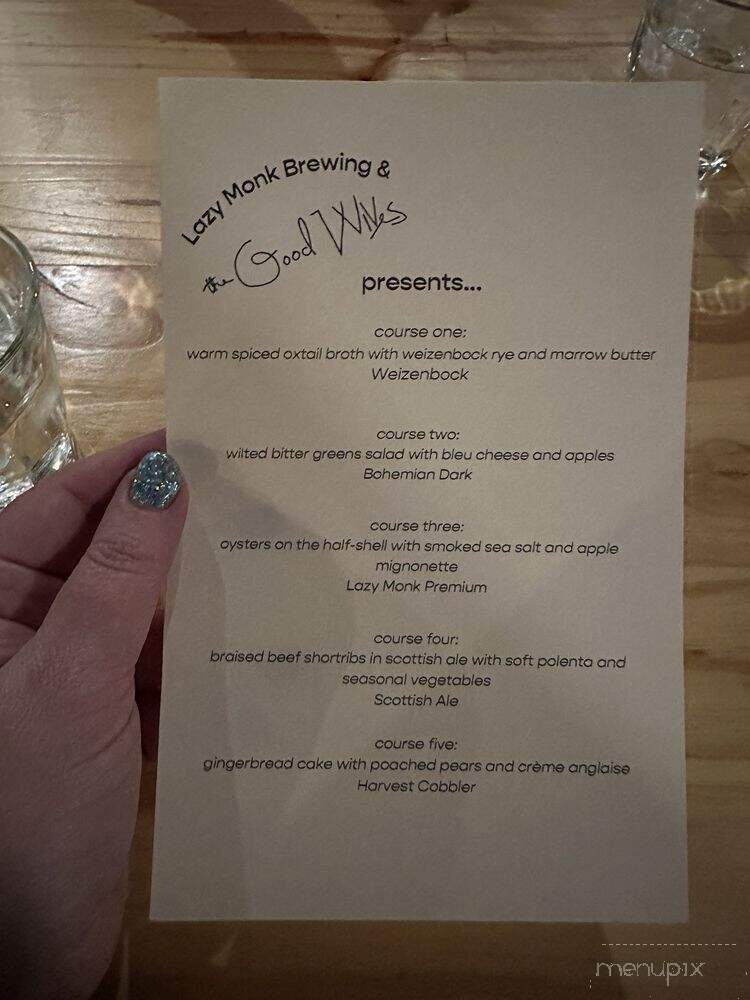 Lazy Monk Brewing &
the Good Wives
presents...
course one:
warm spiced oxtail broth with weizenbock rye and marrow butter
Weizenbock
course two:
wilted bitter greens salad with bleu cheese and apples
Bohemian Dark
course three:
oysters on the half-shell with smoked sea salt and apple
mignonette
Lazy Monk Premium
course four:
braised beef shortribs in scottish ale with soft polenta and
seasonal vegetables
Scottish Ale
course five:
gingerbread cake with poached pears and crème anglaise
Harvest Cobbler
menupix